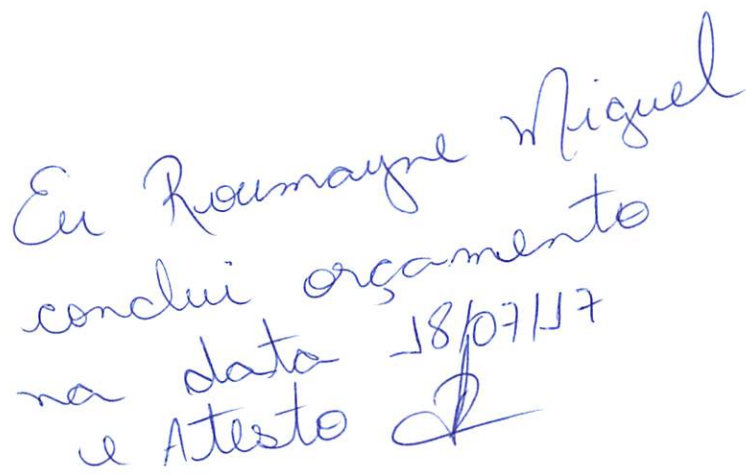 Eu Roumayne Miguel
conclui orçamento
na data 18/07/17
e Atesto